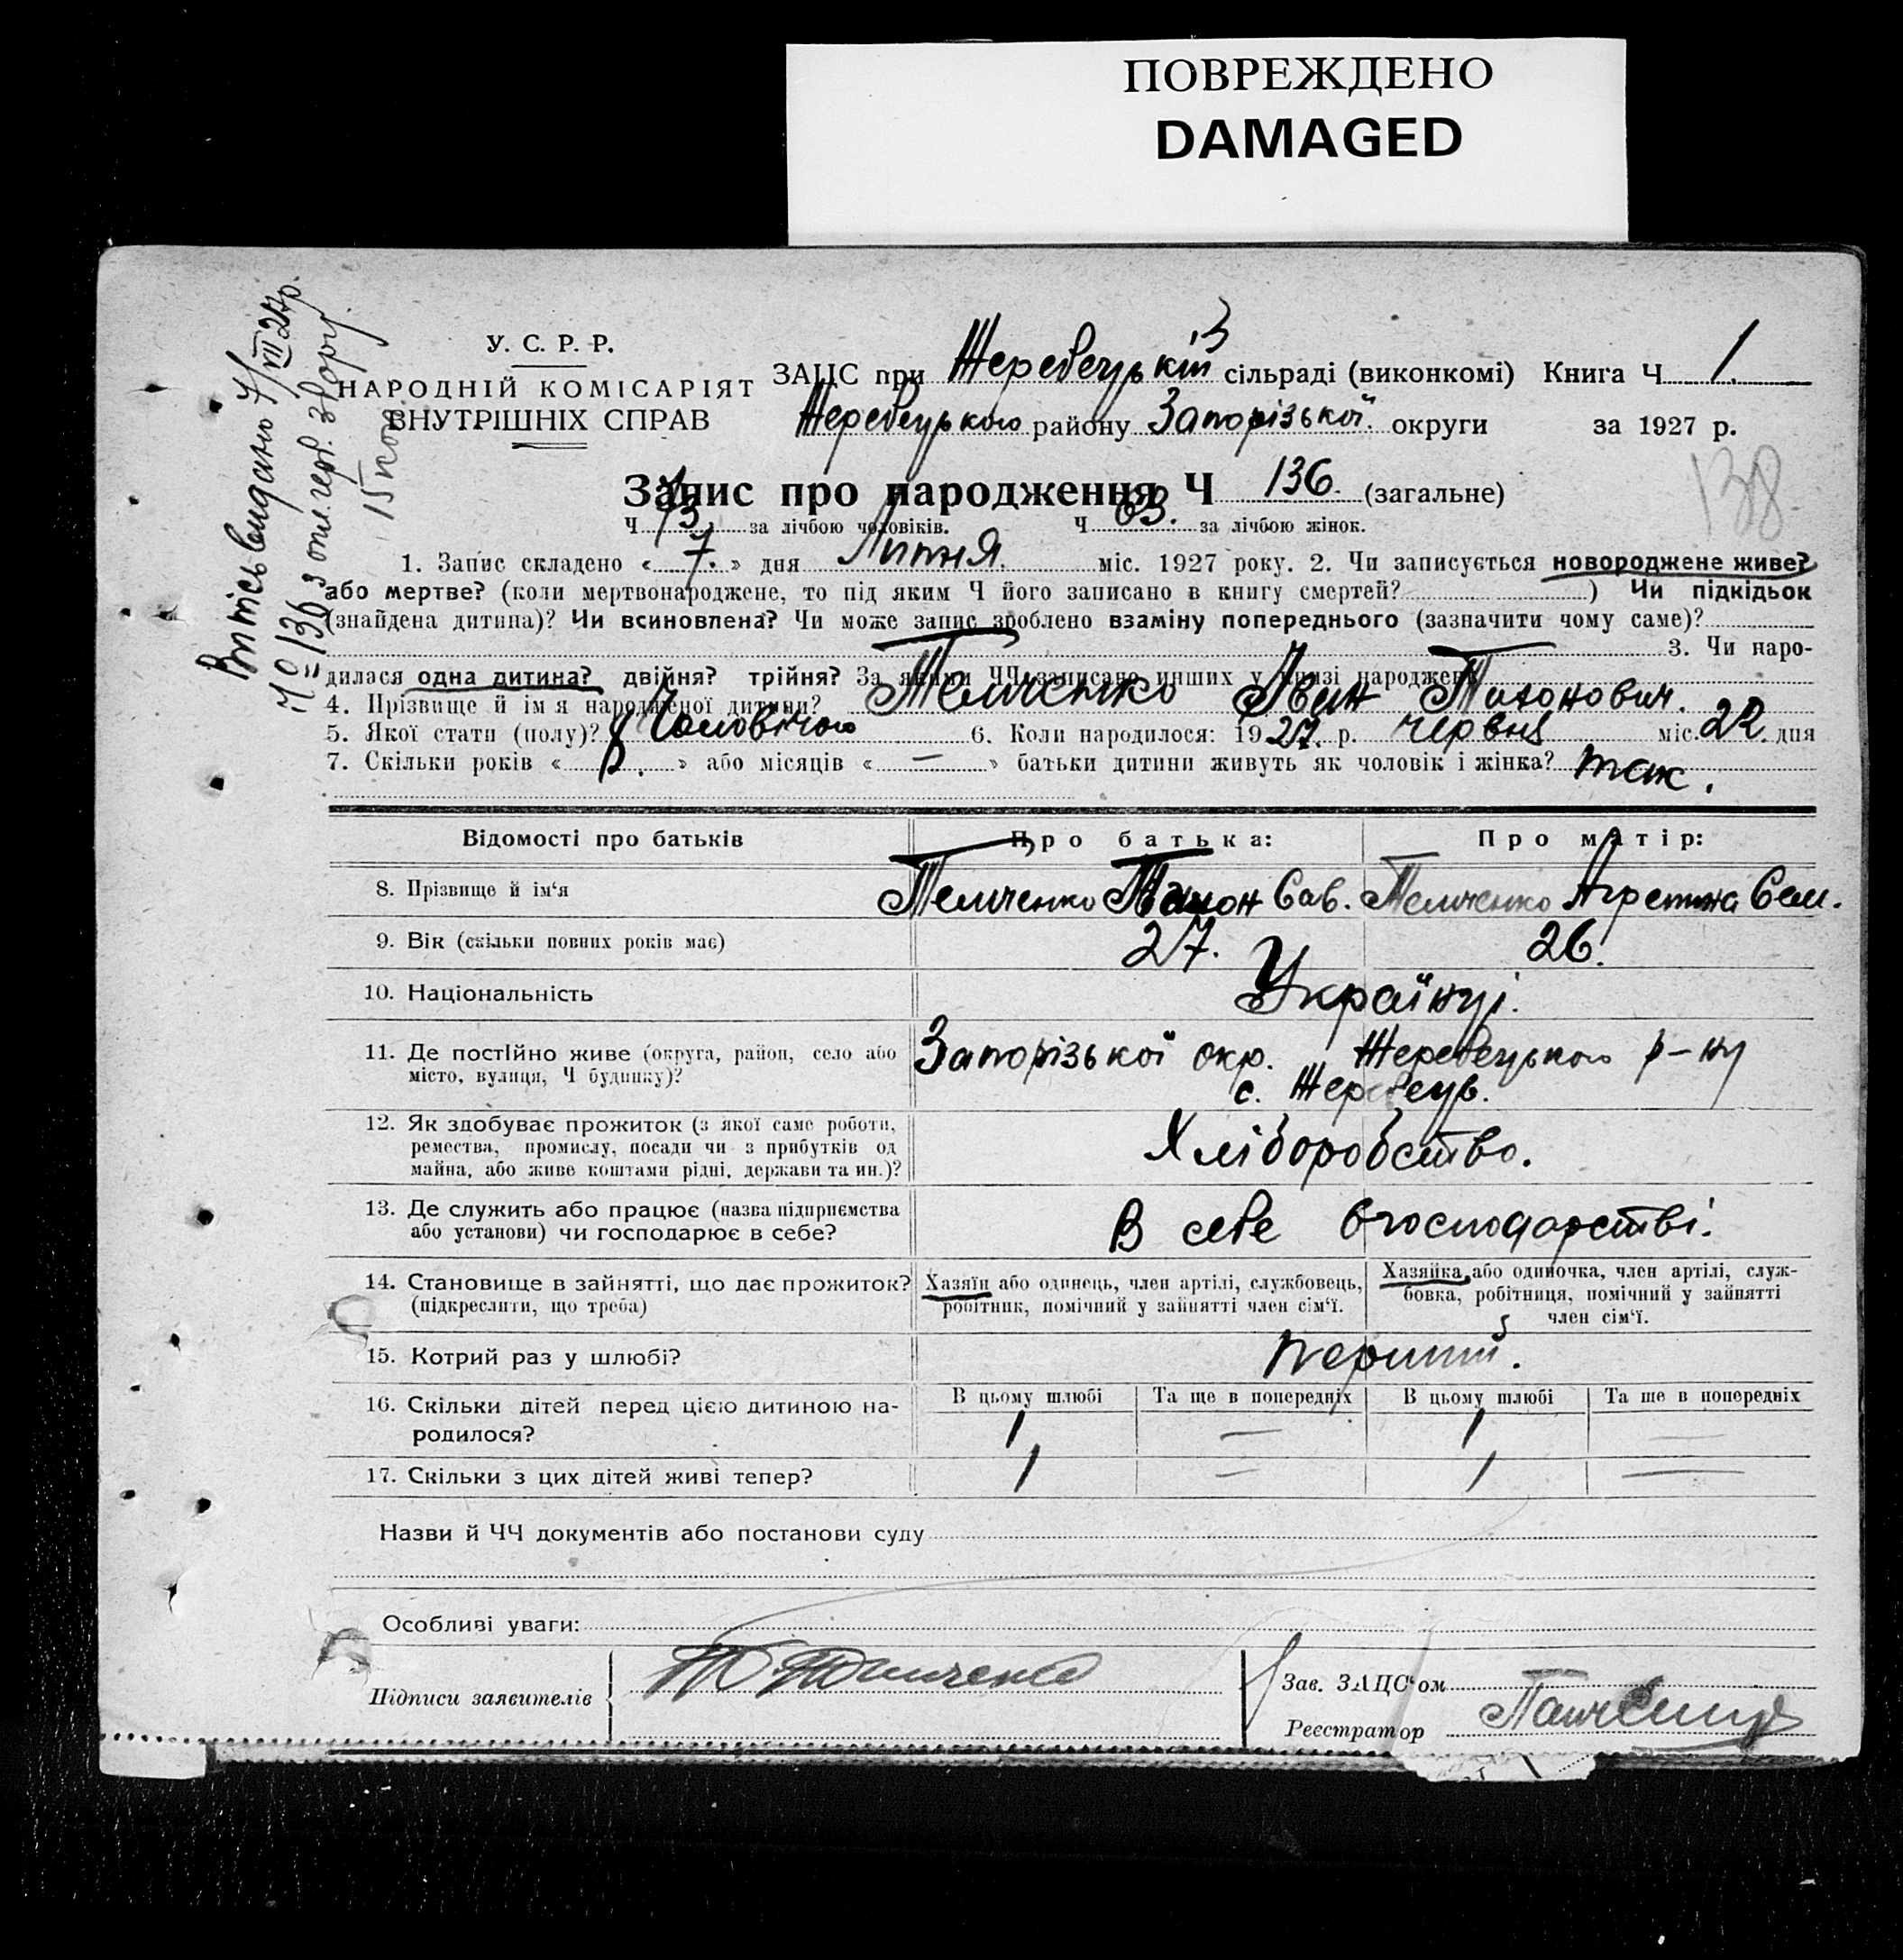 ПОВРЕЖДЕНО
DAMAGED
У. С. Р. Р.
НАРОДНІЙ КОМІСАРІЯТ
ВНУТРІШНІХ СПРАВ
ЗАЦС при Жеребецькій сільраді (виконкомі) Книга Ч 1.
Жеребецького району Запорізької округи за 1927 р.
Запис про народження Ч 136. (загальне)
138
Ч 73 за лічбою чоловіків. Ч 63. за лічбою жінок.
1. Запис складено « 7. » дня Липня. міс. 1927 року. 2. Чи записується новороджене живе?
або мертве? (коли мертвонароджене, то під яким Ч його записано в книгу смертей? ) Чи підкідьок
(знайдена дитина)? Чи всиновлена? Чи може запис зроблено взаміну попереднього (зазначити чому саме)?
3. Чи наро-
дилася одна дитина? двійня? трійня? За якими ЧЧ записано инших у книзі народжень
4. Прізвище й ім'я народженої дитини? Темченко Іван Тихонович.
5. Якої стати (полу)? Чоловічого 6. Коли народилося: 1927. р. червня міс. 22. дня
7. Скільки років « 8. » або місяців « — » батьки дитини живуть як чоловік і жінка? так.
Відомості про батьків
Про батька:
Про матір:
8. Прізвище й ім'я
Темченко Тихон Сав. Темченко Сем.
9. Вік (скільки повних років має)
27. 26.
10. Національність
Українці.
11. Де постійно живе (округа, район, село або
місто, вулиця, Ч будинку)?
Запорізької окр. Жеребецького р-ну
с. Жеребець.
12. Як здобуває прожиток (з якої саме роботи,
ремества, промислу, посади чи з прибутків од
майна, або живе коштами рідні, держави та ин.)?
Хліборобство.
13. Де служить або працює (назва підприємства
або установи) чи господарює в себе?
В себе в господарстві.
14. Становище в зайнятті, що дає прожиток?
(підкреслити, що треба)
Хазяїн або одинець, член артілі, службовець,
робітник, помічний у зайнятті член сім'ї.
Хазяйка або одиночка, член артілі, служ-
бовка, робітниця, помічний у зайнятті
член сім'ї.
15. Котрий раз у шлюбі?
перший.
16. Скільки дітей перед цією дитиною на-
родилося?
В цьому шлюбі Та ще в попередніх В цьому шлюбі Та ще в попередніх
1 — 1 —
17. Скільки з цих дітей живі тепер?
1 — 1 —
Назви й ЧЧ документів або постанови суду
Особливі уваги:
Підписи заявителів
Зав. ЗАЦС'ом
Реєстратор